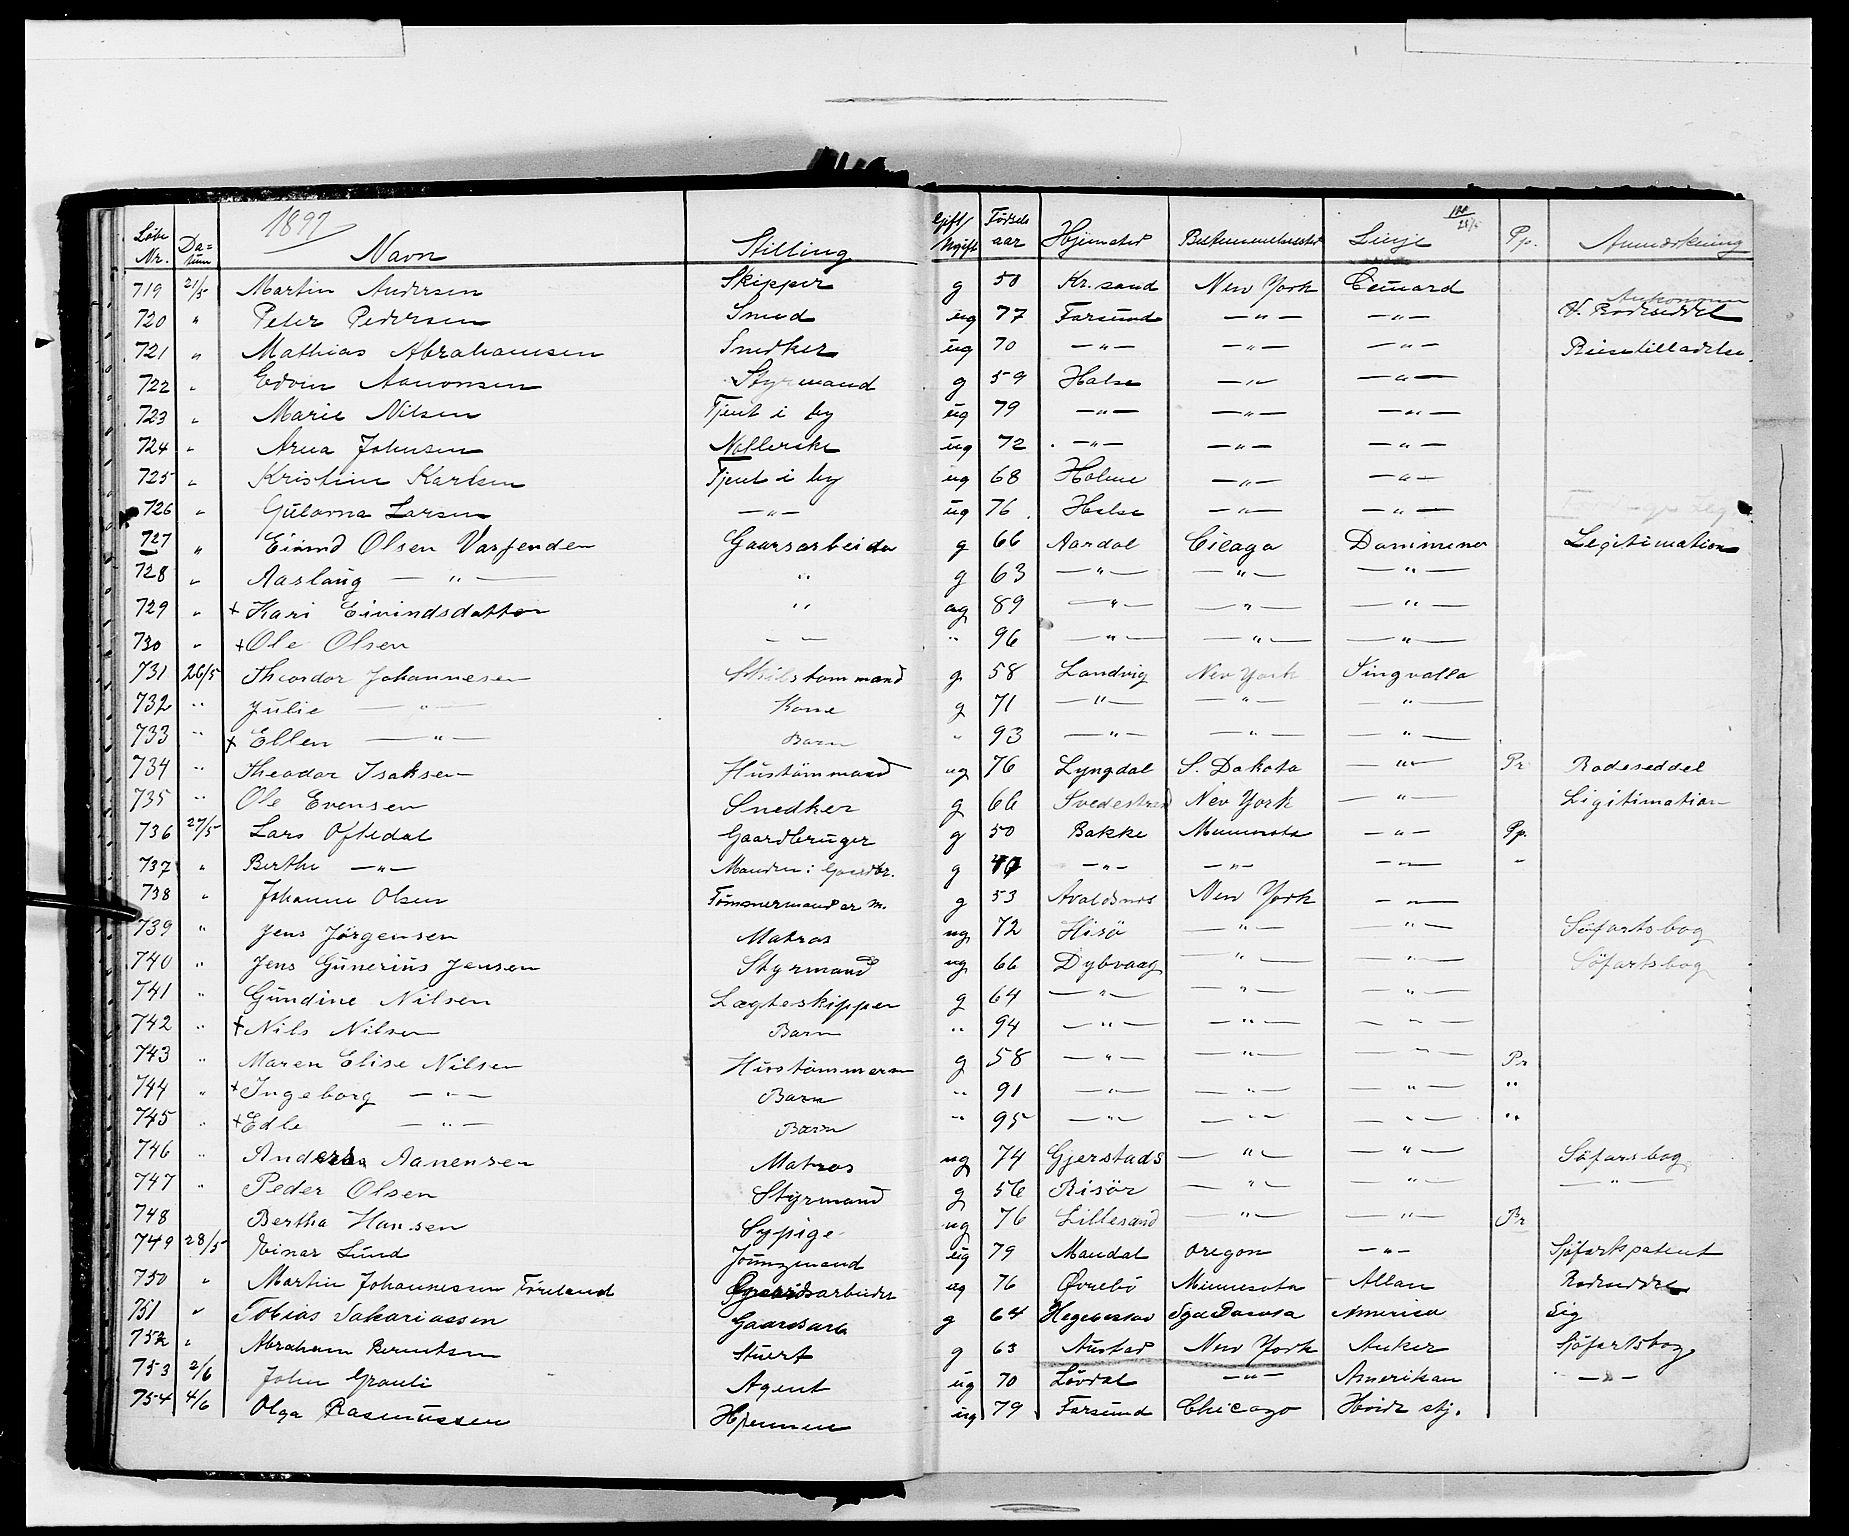 1897
Løbe Nr. Da=tum Navn Stilling Gift/Ugift Fødsels aar Hjemsted Bestemmelsessted Linje Pp. Anmærkning
719 21/5 Martin Andersen Skipper g 50 Kr.sand New York Cunard
720 " Peter Pedersen Smed ug 77 Farsund —"— —"— V. Rodeseddel
721 " Mathias Abrahamsen Snedker ug 70 —"— —"— —"— Reisetilladelse
722 " Edvin Aanonsen Styrmand g 59 Halse —"— —"—
723 " Marie Nilsen Tjent i by ug 79 —"— —"— —"—
724 " Anna Johnsen ug 72 —"— —"— —"—
725 " Kristine Karlsen Tjent i by ug 68 Holme —"— —"—
726 " Gulovna Larsen —"— ug 76 Halse —"— —"—
727 " Eivind Olsen Gaarsarbeider g 66 Aardal Cicago Dominion Legitimation
728 " Aaslaug —"— " g 63 —"— —"— —"—
729 " + Kari Eivindsdatter " ug 89 —"— —"— —"—
730 " + Ole Olsen — — " 96 —"— —"— —"—
731 26/5 Theodor Johannesen Skibstømmand g 58 Landvig New York Tingvalla
732 " Julie —"— Kone g 71 —"— —"— —"—
733 " + Ellen —"— Barn " 93 —"— —"— —"—
734 " Theodor Isaksen Hustømmand ug 76 Lyngdal S. Dakota —"— Pr Rodeseddel
735 " Ole Evensen Snedker g 66 Tvedestrand New York —"— Ligitimation
736 27/5 Lars Oftedal Gaardbruger g 50 Bakke Minnesota —"— Pp.
737 " Berthe —"— Manden: Gaardbr. g —"— —"— —"— "
738 " Johanne Olsen Tømmermand er M. g 53 Avaldsnes New York —"—
739 " Jens Jørgensen Matros ug 72 Hisö —"— —"— Söfartsbog
740 " Jens Gunerius Jensen Styrmand ug 66 Dybvaag —"— —"— Söfartsbog
741 " Gundine Nilsen Lægteskipper g 64 —"— —"— —"—
742 " + Nils Nilsen Barn " 94 —"— —"— —"—
743 " Maren Elise Nilsen Hustømmerm g 58 —"— —"— —"— Pr
744 " + Ingeborg —"— Barn " 91 —"— —"— —"— "
745 " + Edle —"— Barn " 95 —"— —"— —"— "
746 " Anders Aanensen Matros ug 74 Gjerstads —"— —"— Söfarsbog
747 " Peder Olsen Styrmand g 56 Risör —"— —"— —"—
748 Bertha Hansen Sypige ug 76 Lillesand —"— —"— Pr
749 28/5 Einar Lund Jungmand ug 79 Mandal Oregon —"— Sjøfartspatent
750 " Martin Johannessen Føreland Gaardsarbeider ug 76 Øvrebö Minnesota Allan Rodeseddel
751 " Tobias Sakariassen Gaardsarb g 64 Hegebostad Syd Dacota America Sig
752 " Abraham Berntsen Stuert g 63 Austad New York Anker Sjøfartsbog
753 2/6 John Grauli Agent ug 70 Løvdal —"— Amerikan —"—
754 4/6 Olga Rasmussen Hjemme ug 79 Farsund Chicago Hvide stj.